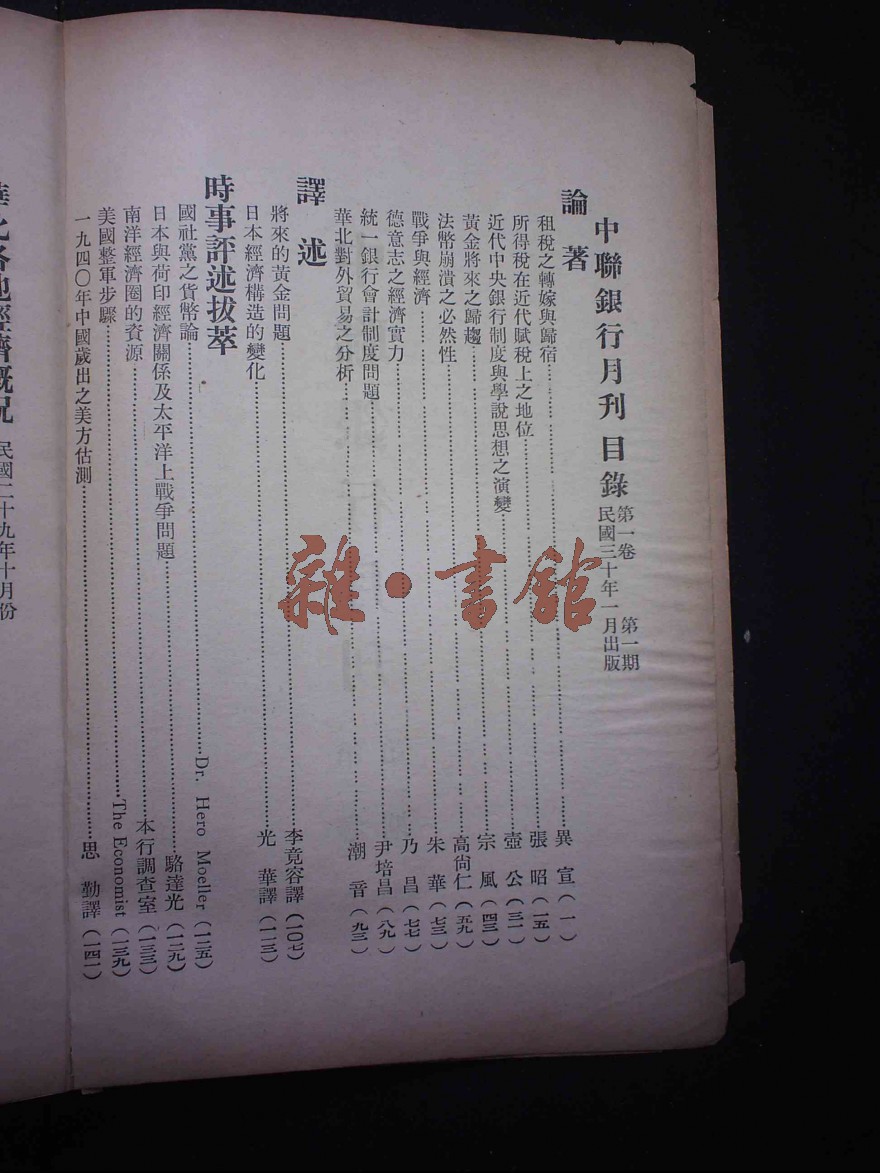 中聯銀行月刊目錄 第一卷 第一期
民國三十年一月出版
論著
租稅之轉嫁與歸宿 異宣 (一)
所得稅在近代賦稅上之地位 張昭 (一五)
近代中央銀行制度與學說思想之演變 壺公 (三一)
黃金將來之歸趨 宗風 (四三)
法幣崩潰之必然性 高尙仁 (五九)
戰爭與經濟 朱華 (七三)
德意志之經濟實力 乃昌 (七七)
統一銀行會計制度問題 尹培昌 (八九)
華北對外貿易之分析 潮音 (九三)
譯述
將來的黃金問題 李竟容譯 (一〇七)
日本經濟構造的變化 光華譯 (一一三)
時事評述拔萃
國社黨之貨幣論 Dr. Hero Moeller (一二五)
日本與荷印經濟關係及太平洋上戰爭問題 駱達光 (一二九)
南洋經濟圏的資源 本行調查室 (一三三)
美國整軍步驟 The Economist (一三九)
一九四〇年中國歲出之美方估測 思勤譯 (一四一)
華北各地經濟概況 民國二十九年十月份
雜·書館